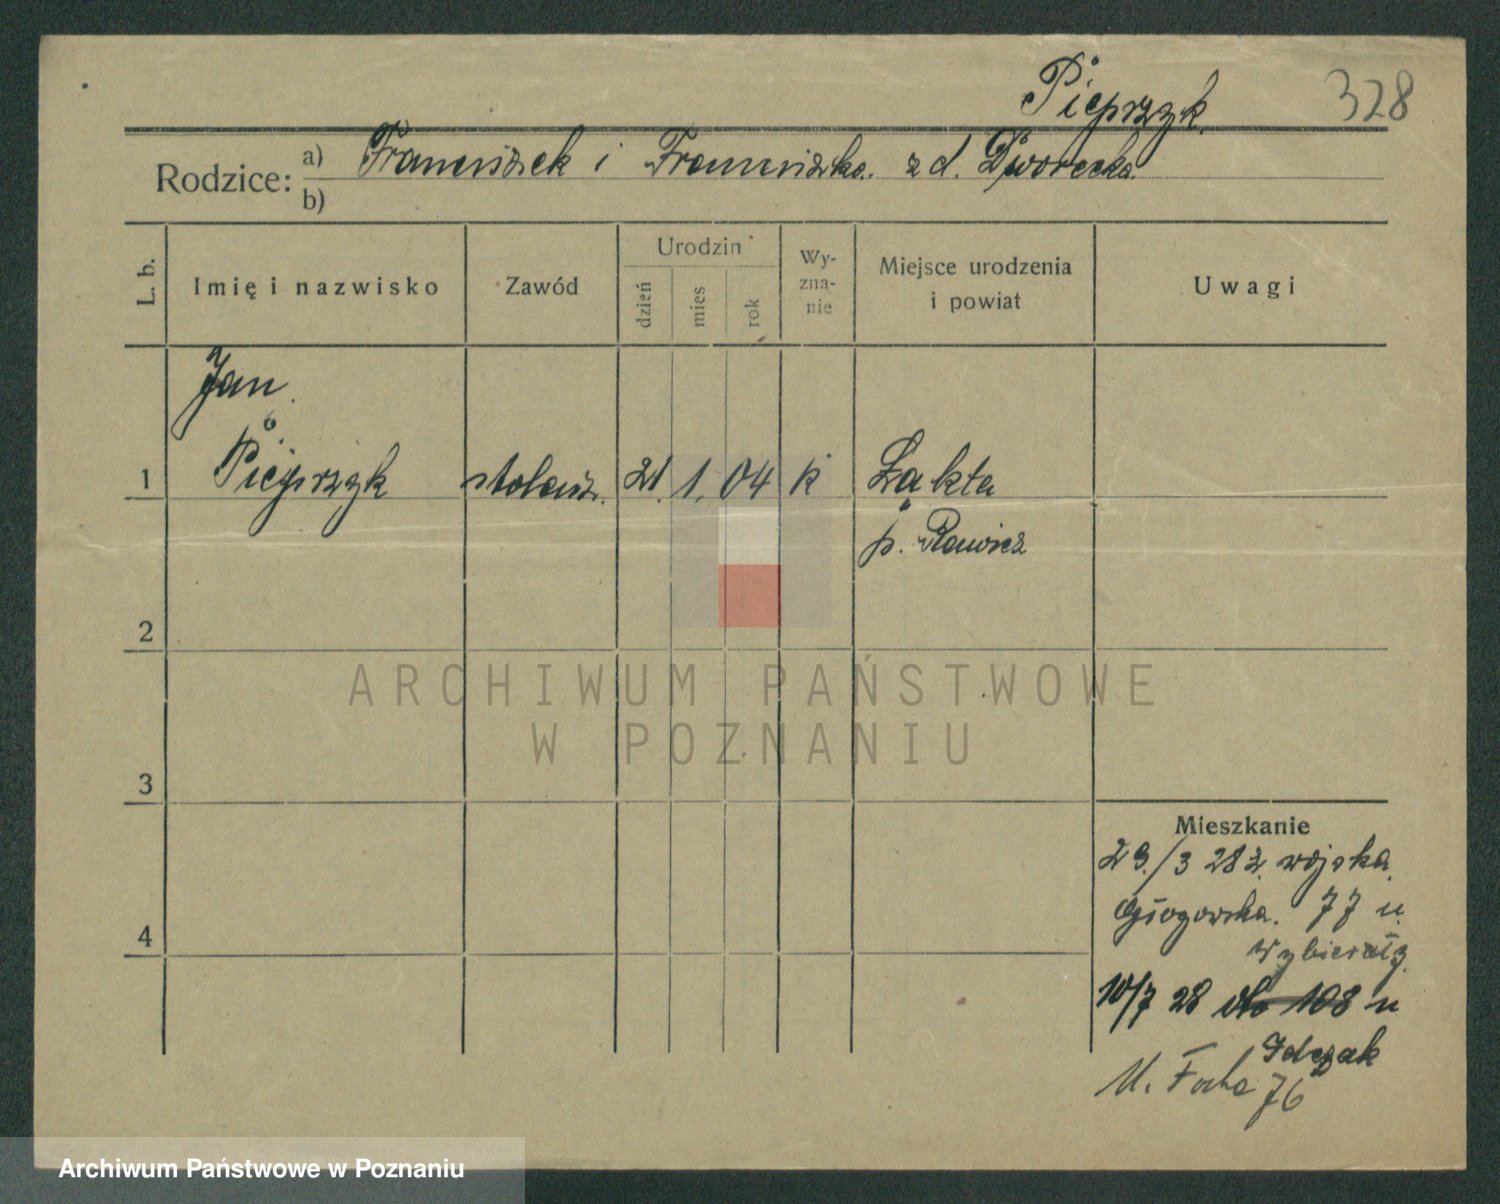 Pieprzyk
328
Rodzice: a) Franciszek i Franciszka z d. Dworecka
b)
L. b.
Imię i nazwisko
Zawód
Urodzin
dzień
mies
rok
Wy-
zna-
nie
Miejsce urodzenia
i powiat
Uwagi
Jan
1 Pieprzyk stolarz. 21. 1. 04 k Łąkta
p. Rawicz
2
3
4
ARCHIWUM PAŃSTWOWE
W POZNANIU
Mieszkanie
29./3 28 z wojska
Głogowska. 77 u
10/7 28 108 u
M. Focha 76
Archiwum Państwowe w Poznaniu